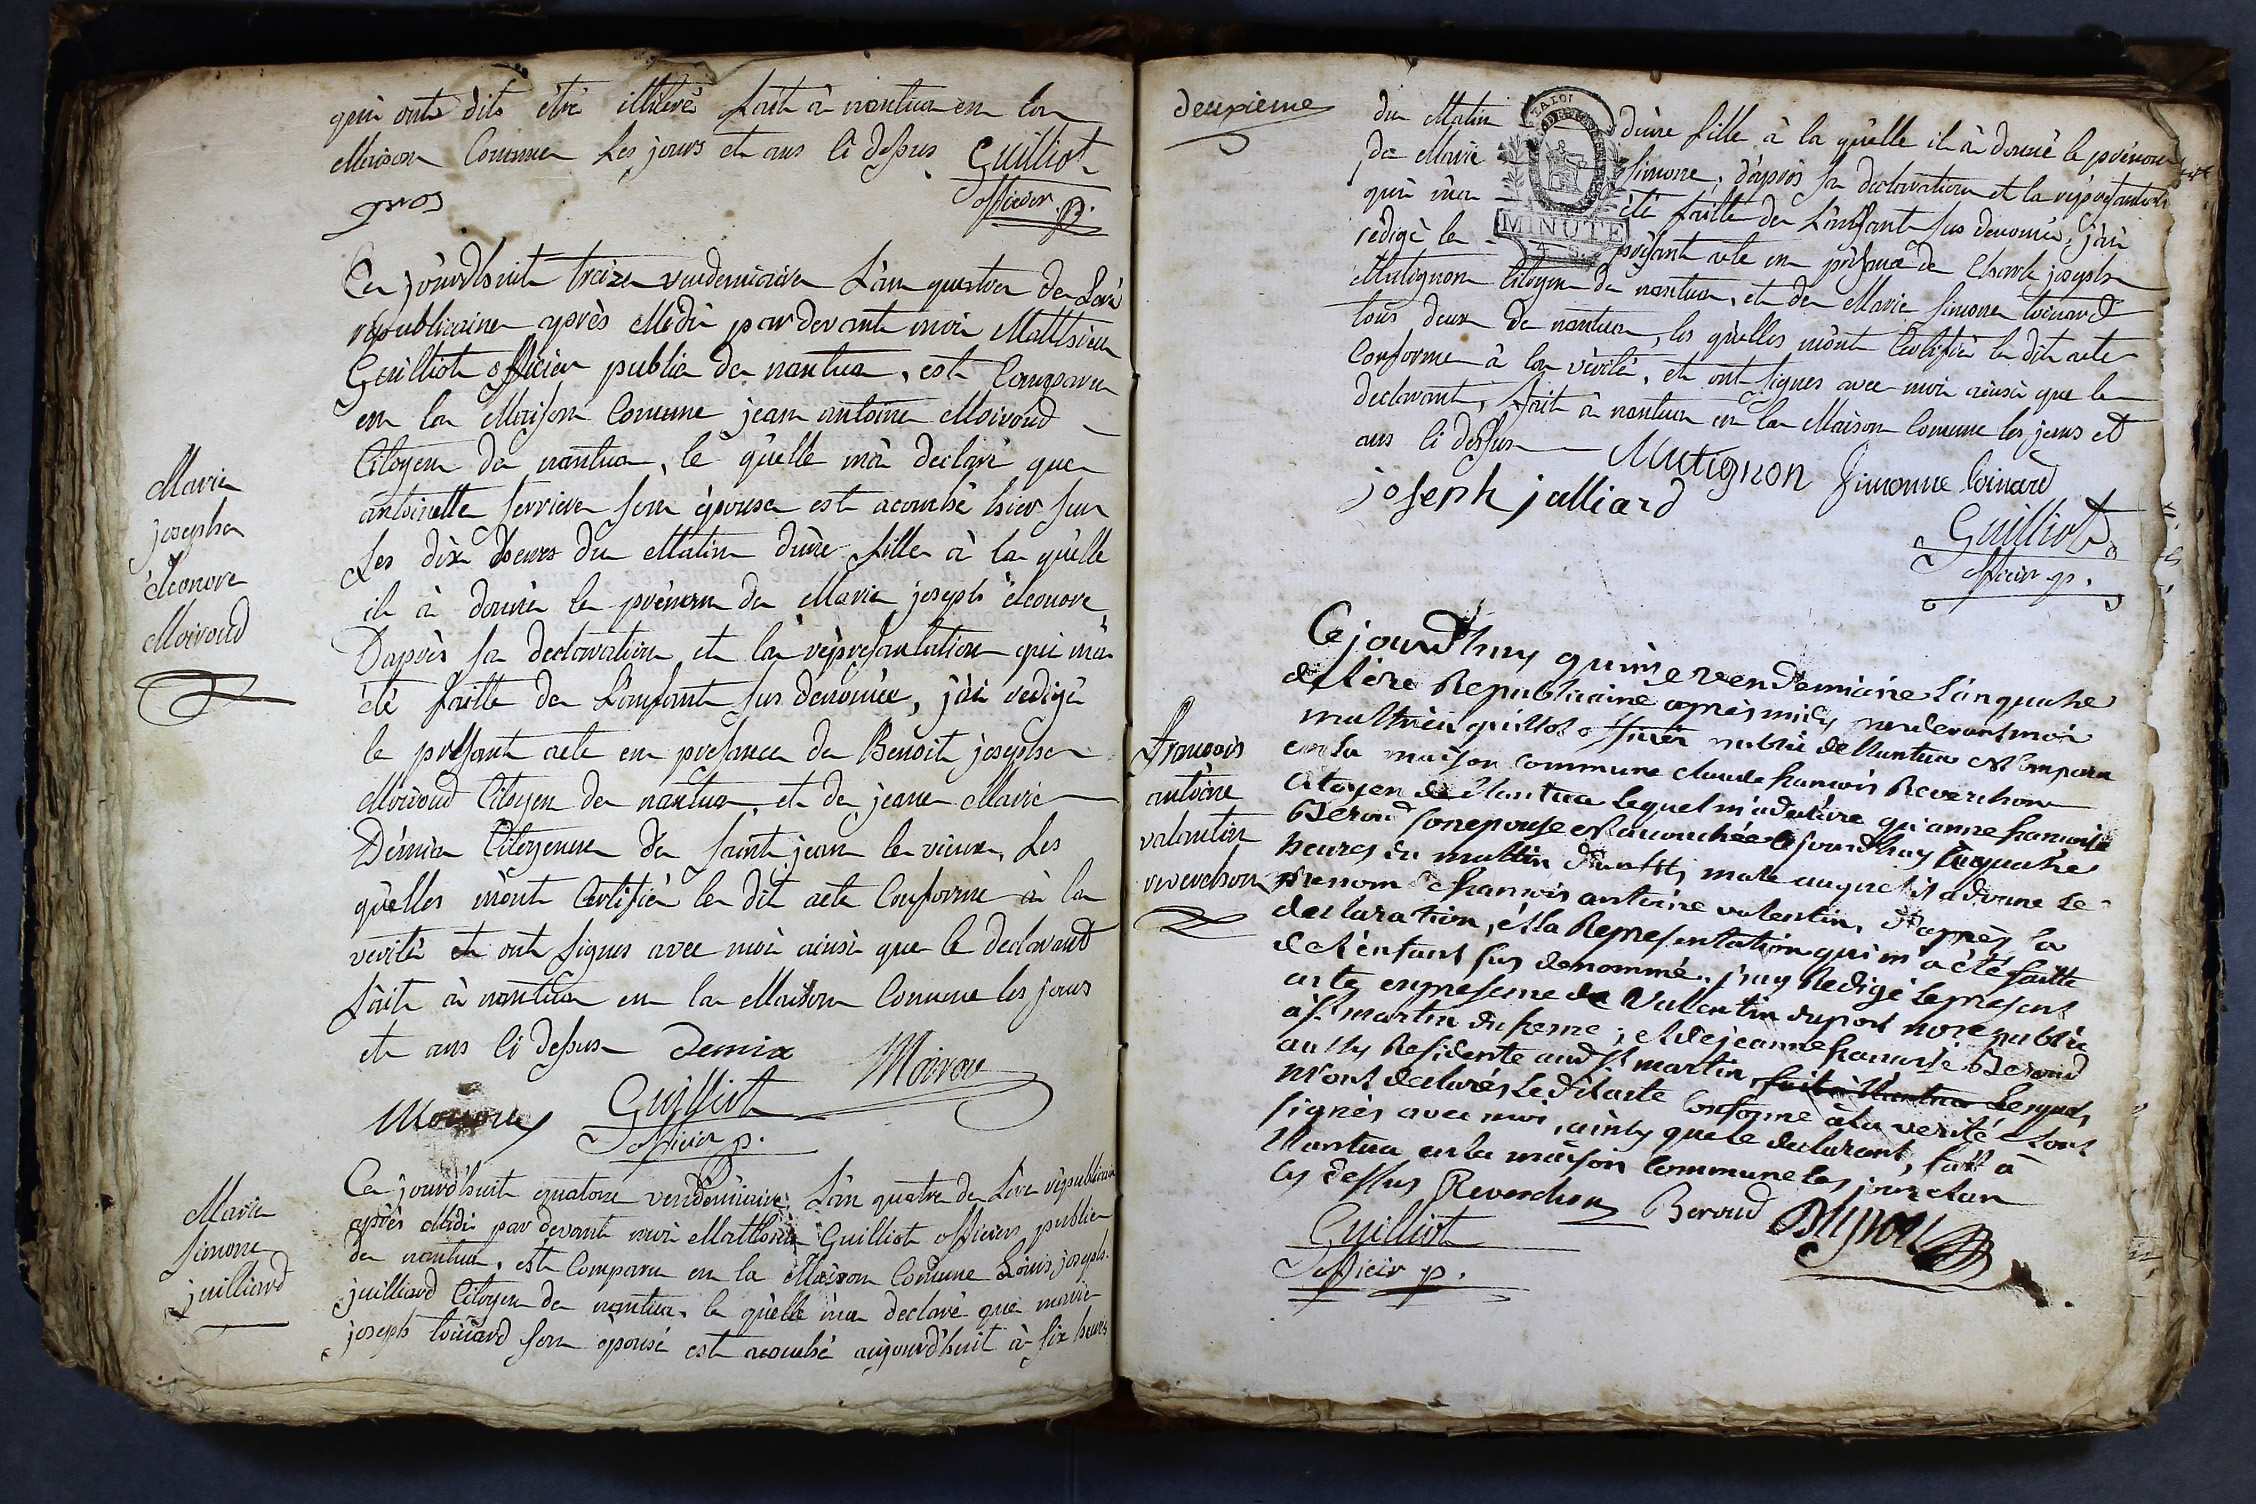 qui ont dits être illitéré fait à nantua en la
Maison Commune les jours et ans ci dessus Guilliot
gros officier p.
Ce jourdhuit treize vendemiaire L'an quatre de L'erè
républicaine après Midi par devant moi Matthieu
Guilliot officier public de nantua, est Comparu
en la Maison Comune jean antoine Moiroud
Citoyen de nantua, le quelle mà declaré que
antoinette ferriere son épouse est acouchè hier sur
Les dix heures du Matin dune fille à la quelle
il à donné le prénom de Marie joseph éléonore
Daprès sa declaration et la représantation qui mà
été faitte de L'anfant sus denomée, jài redigé
le présant acte en présance de Benoit joseph
Moiroud Citoyen de nantua, et de jeane Marie
Démia Citoyenne de saint jean le vieux, Les
quelles mònt Certifié le dit acte Conforme à la
verité et ont signés avec moi ainsi que le declarant
fait à nantua en la Maison Comune les jours
et ans ci dessus demia Moirou
Moirou Guilliot
officier p.
Marie
josephe
éléonore
Moiroud
Ce jourd'huit quatorze vendémiaire L'àn quatre de L'ère républicaine
après Midi par devant moi Matthieu Guilliot officier public
de nantua, est Comparu en la Maison Comune Louis joseph
juilliard Citoyen de nantua, le quelle mà declaré que marie
joseph loinard son épouse est acouché aujourd'huit à six heures
Marie
simone
juilliard
deuxieme
du Matin dune fille à la quelle il à donné le prénom
de Marie simone, d'après sa declaration et la représantation
qui mà été faitte de L'anfant sus denomée, jài
rédigé le présant acte en présance de Charle joseph
Mutignon Citoyen de nantua, et de Marie simone loinard
tous deux de nantua, les quelles mònt Certifié le dit acte
Conforme à la vérité, et ont signés avec moi ainsi que le
declarant, fait à nantua en la Maison Comune les jours et
ans ci dessus Mutignon Simonne loinard
joseph julliard
Guilliot
officier p.
LA LOI
MINUTE
Ce jourdhuy quinze vendemiaire l'an quatre
de l'ère Republicaine après midy pardevant moi
matthieu guilliot officier public de Nantua est comparu
en la maison commune claude françois Reverchon
citoyen de Nantua lequel m'a declaré qu'anne françoise
Beroud son epouse est accouchée ce jourdhuy à quatre
heures du mattin d'un fils male auquel il a donne le
prenom de françois antoine valentin, d'après la
declaration, et la Representation qui m'a été faitte
de l'enfant sus denommé. j'ay Redigé le present
acte en presence de Valentin duport nore public
à st martin dufrene, et de jeanne françoise Beroud
aussy Residente aud. st martin, fait à Nantua Lesquels
m'ont declarés Ledit acte conforme à la verité et ont
signés avec moi, ainsy que le declarant, fait à
Nantua en la maison commune les jour et an
cy dessus Reverchon Beroud Duport
Guilliot
officier p.
francois
antoine
valantin
reverchon